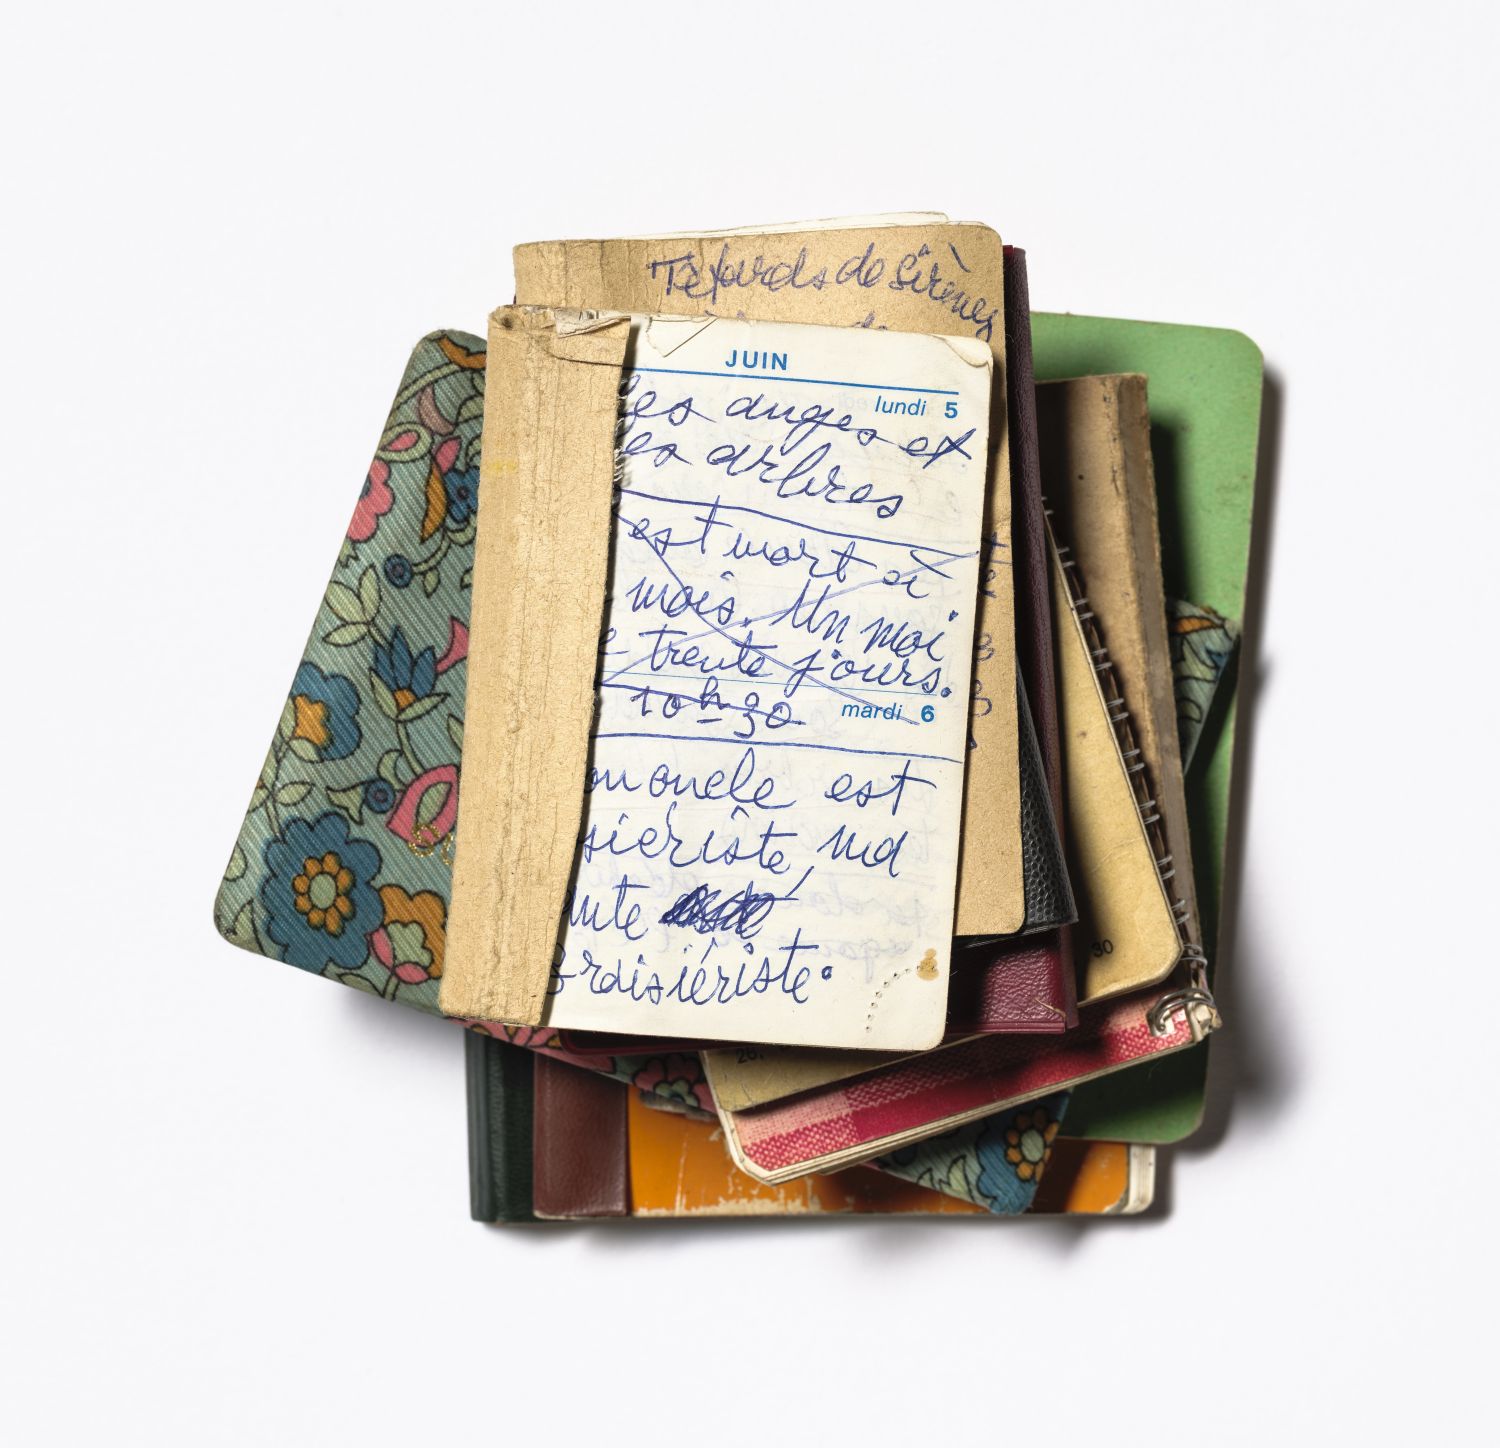 Têtards de Sirènes
JUIN
lundi 5
les anges et
les arbres
est mort à
mois. Un moi
trente jours.
10h30
mardi 6
on oncle est
siériste, ma
ante
rdisiériste.
30
26,